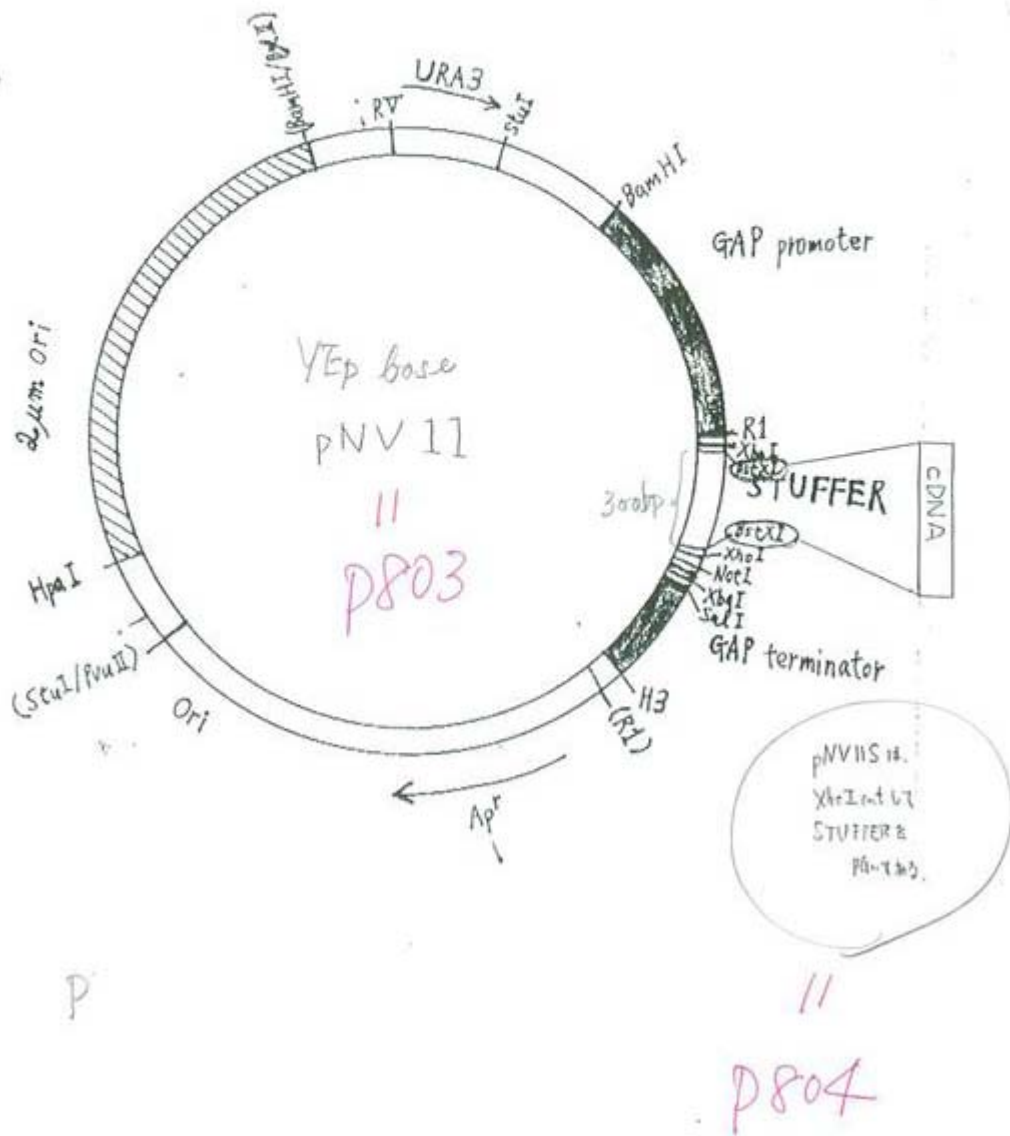 (BamHI/BglII)
RV
URA3
StuI
BamHI
GAP promoter
2μm Ori
YEp base
pNV11
=
p803
R1
XbaI
BstXI
STUFFER
300bp
cDNA
BstXI
XhoI
NotI
XbaI
SalI
GAP terminator
HpaI
(StuI/PvuII)
Ori
H3
(R1)
Apʳ
pNV11Sは、
XhoI cutして
STUFFERを
除いてある。
P
=
p804